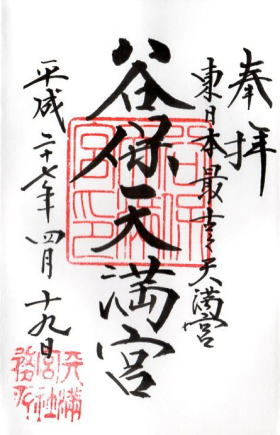 奉拝
東日本最古之天満宮
谷保天満宮
平成二十七年四月十九日
天満
宮社
務所